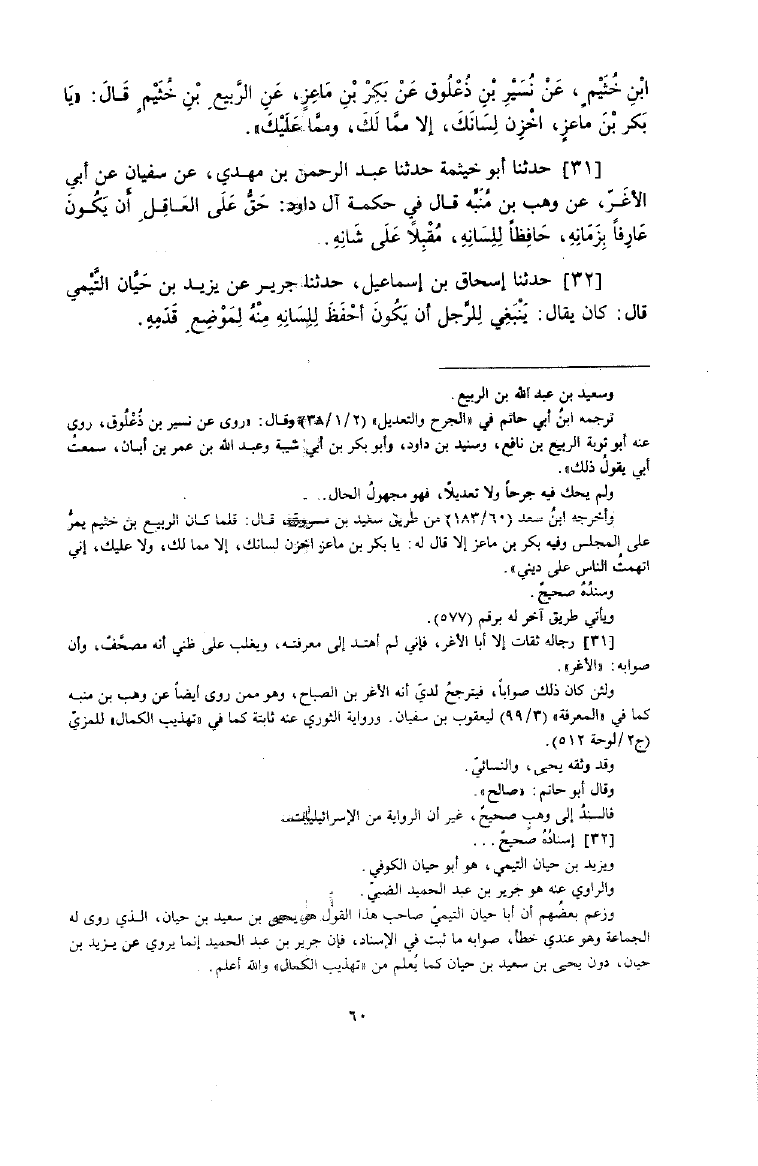 ابْنِ خُثَيْمٍ، عَنْ نُسَيْرِ بْنِ ذُعْلُوق عَنْ بَكِرْ بْنِ مَاعِزٍ، عَنِ الرَّبِيعِ بْنِ خُثَيْمٍ قَالَ: «يَا
بَكر بْنَ ماعزٍ، اخْزِن لِسَانَكَ، إلا ممَّا لَكَ، وممَّا عَلَيْكَ».
[٣١] حدثنا أبو خيثمة حدثنا عبد الرحمن بن مهدي، عن سفيان عن أبي
الأغَرّ، عن وهب بن مُنَبِّه قال في حكمة آل داود: حَقُّ عَلَى العَاقِلِ أَن يَكُونَ
عَارِفاً بِزَمَانِهِ، حَافِظاً لِلِسَانِهِ، مُقْبِلاً عَلَى شَانِهِ.
[٣٢] حدثنا إسحاق بن إسماعيل، حدثنا جرير عن يزيد بن حَيَّان التَّيْمي
قال: كان يقال: يَنْبَغِي لِلرَّجل أن يَكُونَ أحْفَظَ لِلِسَانِهِ مِنْهُ لِمَوْضِعِ قَدَمِهِ.
وسعيد بن عبد الله بن الربيع.
ترجمه ابنُ أبي حاتم في «الجرح والتعديل» (٣٨/١/٢) وقال: «روى عن نسير بن ذُعْلُوق، روى
عنه أبو توبة الربيع بن نافع، وسنيد بن داود، وأبو بكر بن أبي شيبة وعبد الله بن عمر بن أبان، سمعتُ
أبي يقولُ ذلك».
ولم يحك فيه جرحاً ولا تعديلاً، فهو مجهولُ الحال.
وأخرجه ابنُ سعد (١٨٣/٦) من طريق سعيد بن مسروق، قال: قلما كان الربيع بن خثيم يمرُّ
على المجلس وفيه بكر بن ماعز إلا قال له: يا بكر بن ماعز اخزن لسانك، إلا مما لك، ولا عليك، إني
اتهمتُ الناس على ديني».
وسندُهُ صحيحٌ.
ويأتي طريق آخر له برقم (٥٧٧).
[٣١] رجاله ثقات إلا أبا الأغر، فإني لم أهتد إلى معرفته، ويغلب على ظني أنه مصحَّفٌ، وأن
صوابه: «الأغر».
ولئن كان ذلك صواباً، فيترجحُ لديّ أنه الأغر بن الصباح، وهو ممن روى أيضاً عن وهب بن منبه
كما في «المعرفة» (٩٩/٣) ليعقوب بن سفيان. ورواية الثوري عنه ثابتة كما في «تهذيب الكمال» للمزيّ
(ج٢/لوحة ٥١٢).
وقد وثقه يحيى، والنسائيّ.
وقال أبو حاتم: «صالح».
فالسندُ إلى وهبٍ صحيحٌ، غير أن الرواية من الإسرائيليات.
[٣٢] إسنادُهُ صحيحٌ...
ويزيد بن حيان التيمي، هو أبو حيان الكوفي.
والراوي عنه هو جرير بن عبد الحميد الضبيّ.
وزعم بعضُهم أن أبا حيان التيميّ صاحب هذا القول هو يحيى بن سعيد بن حيان، الذي روى له
الجماعة وهو عندي خطأ، صوابه ما ثبت في الإسناد، فإن جرير بن عبد الحميد إنما يروي عن يزيد بن
حيان، دون يحيى بن سعيد بن حيان كما يُعلم من «تهذيب الكمال» والله أعلم.
٦٠